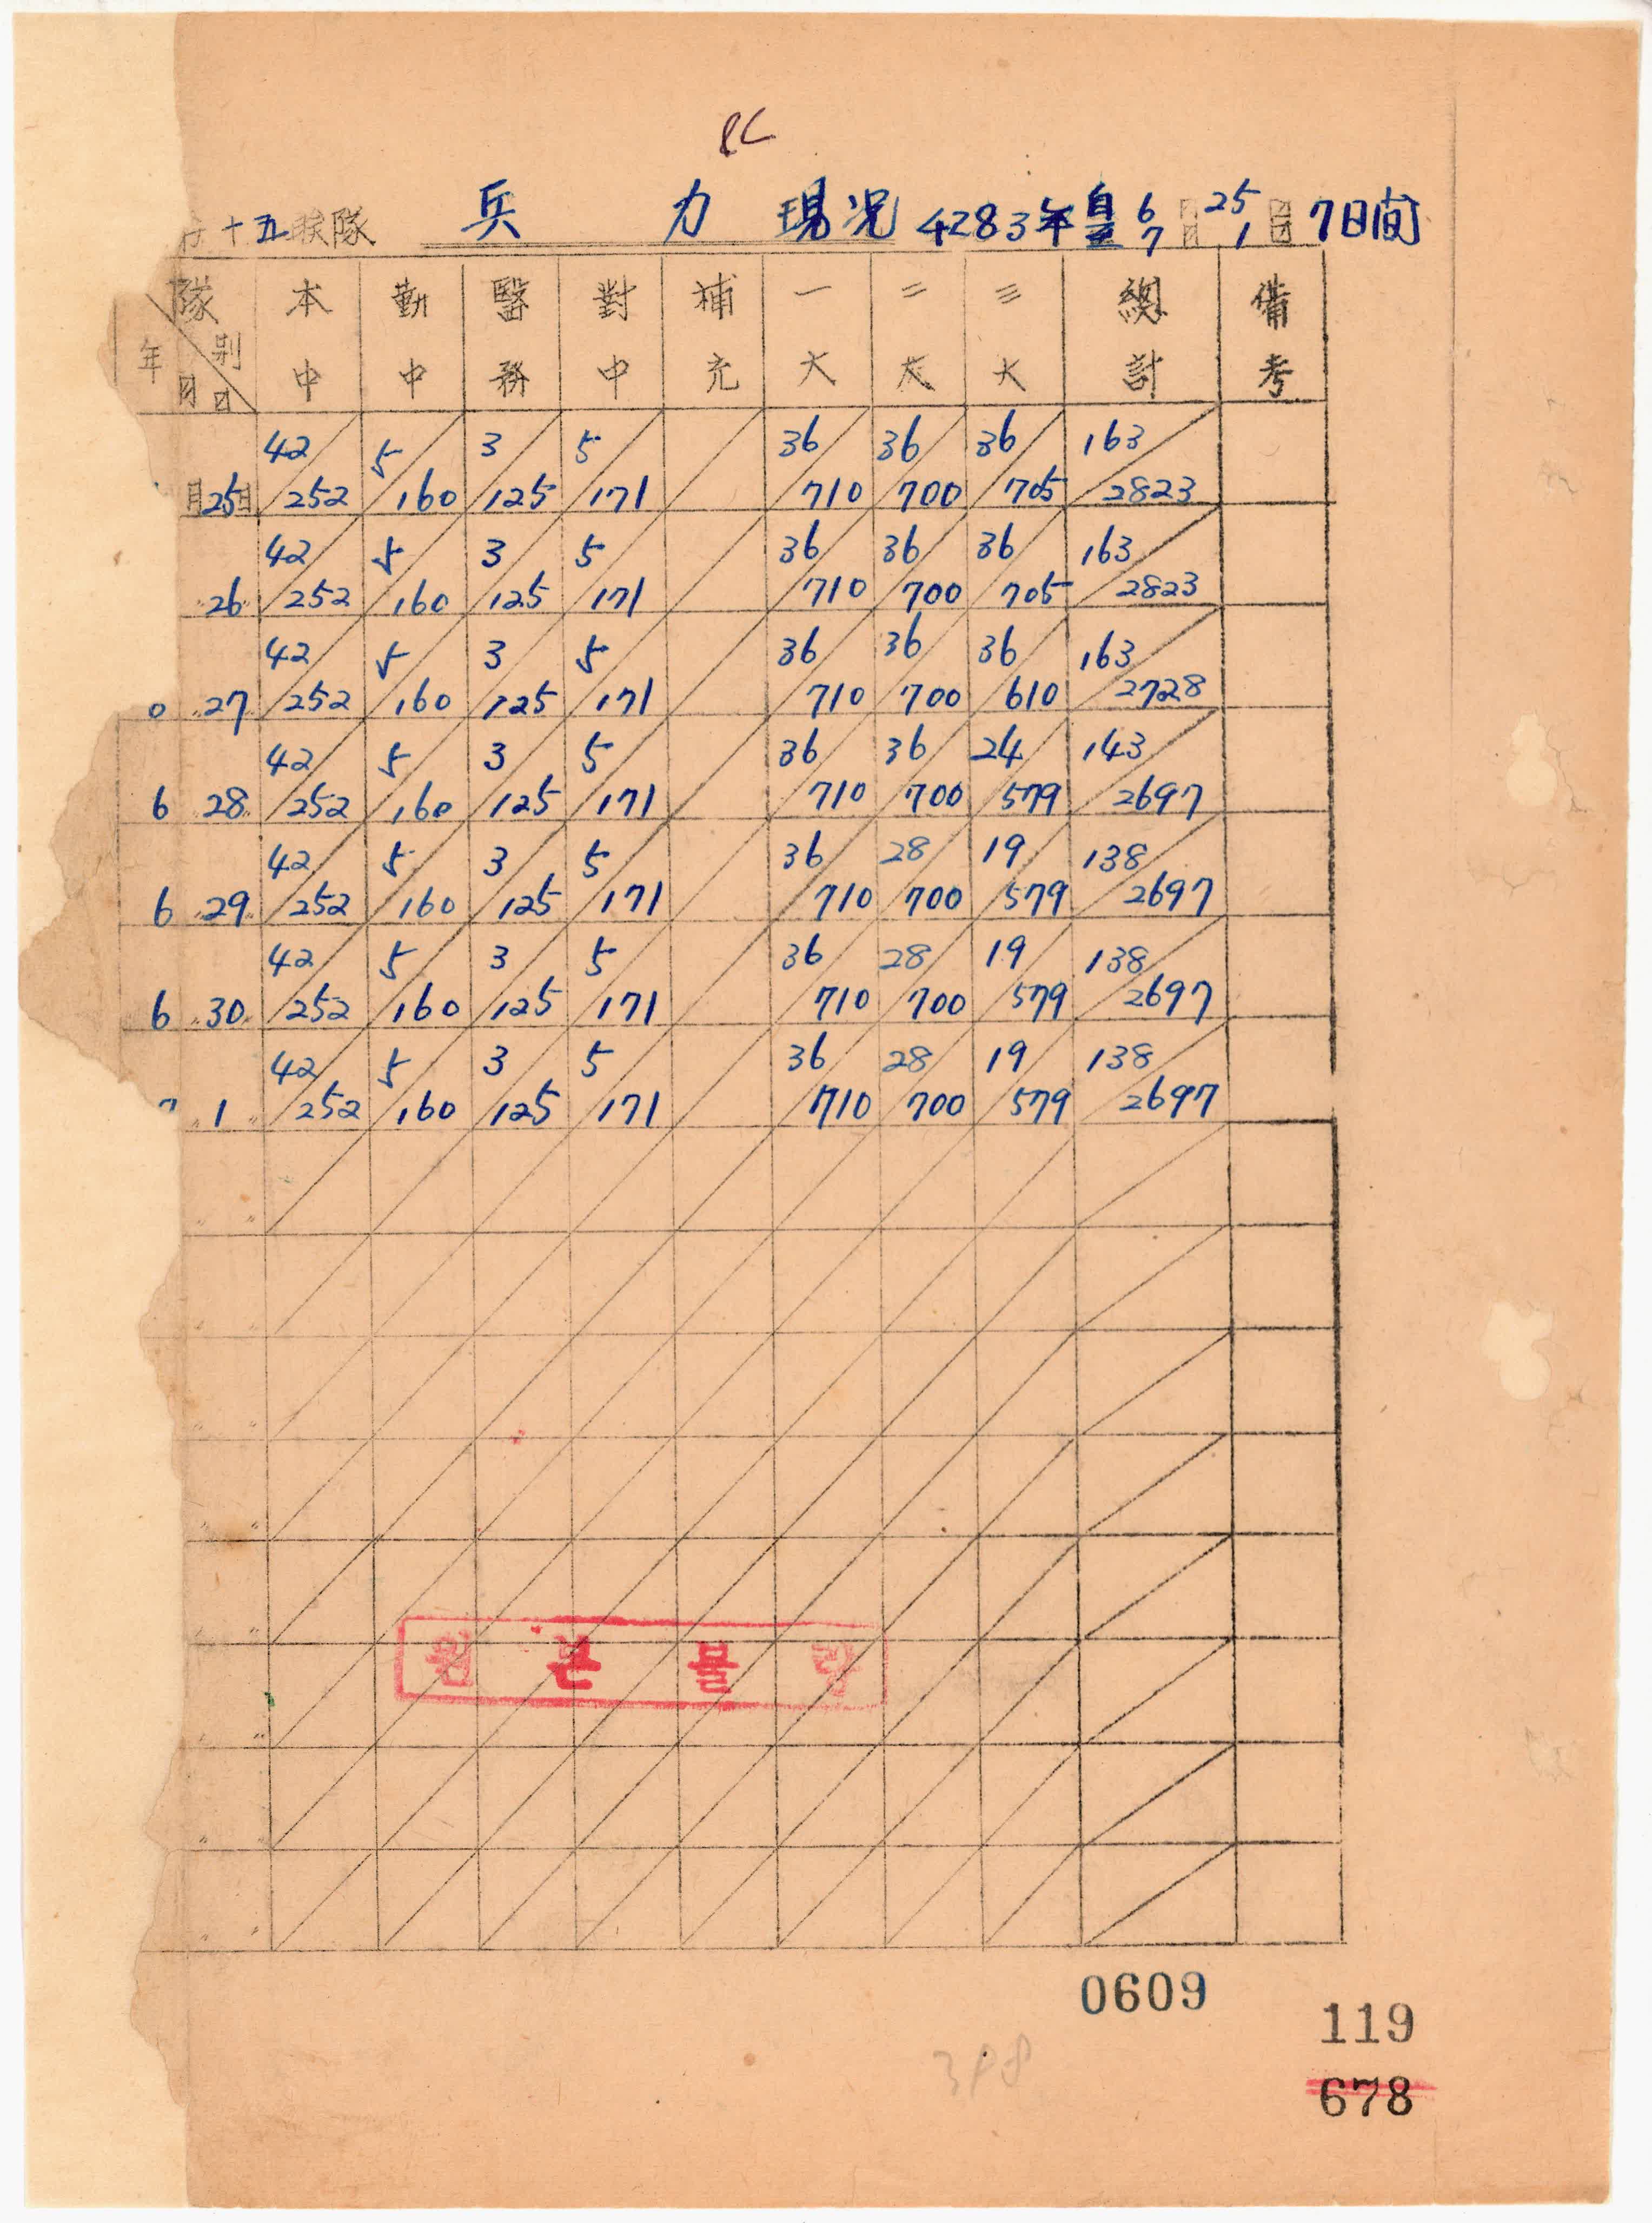 十五聯隊 兵力現況 4283年 自至 6月25日 7月1日 7日間
隊別 本 勤 醫 對 補 一 二 三 總 備
年月日 中 中 務 中 充 大 大 大 計 考
42 5 3 5 36 36 36 163
月25日 252 160 125 171 710 700 705 2823
42 5 3 5 36 36 36 163
〃26〃 252 160 125 171 710 700 705 2823
42 5 3 5 36 36 36 163
〃27〃 252 160 125 171 710 700 610 2728
42 5 3 5 36 36 24 143
6〃28〃 252 160 125 171 710 700 579 2697
42 5 3 5 36 28 19 138
6〃29〃 252 160 125 171 710 700 579 2697
42 5 3 5 36 28 19 138
6〃30〃 252 160 125 171 710 700 579 2697
42 5 3 5 36 28 19 138
7〃1〃 252 160 125 171 710 700 579 2697
0609
119
678